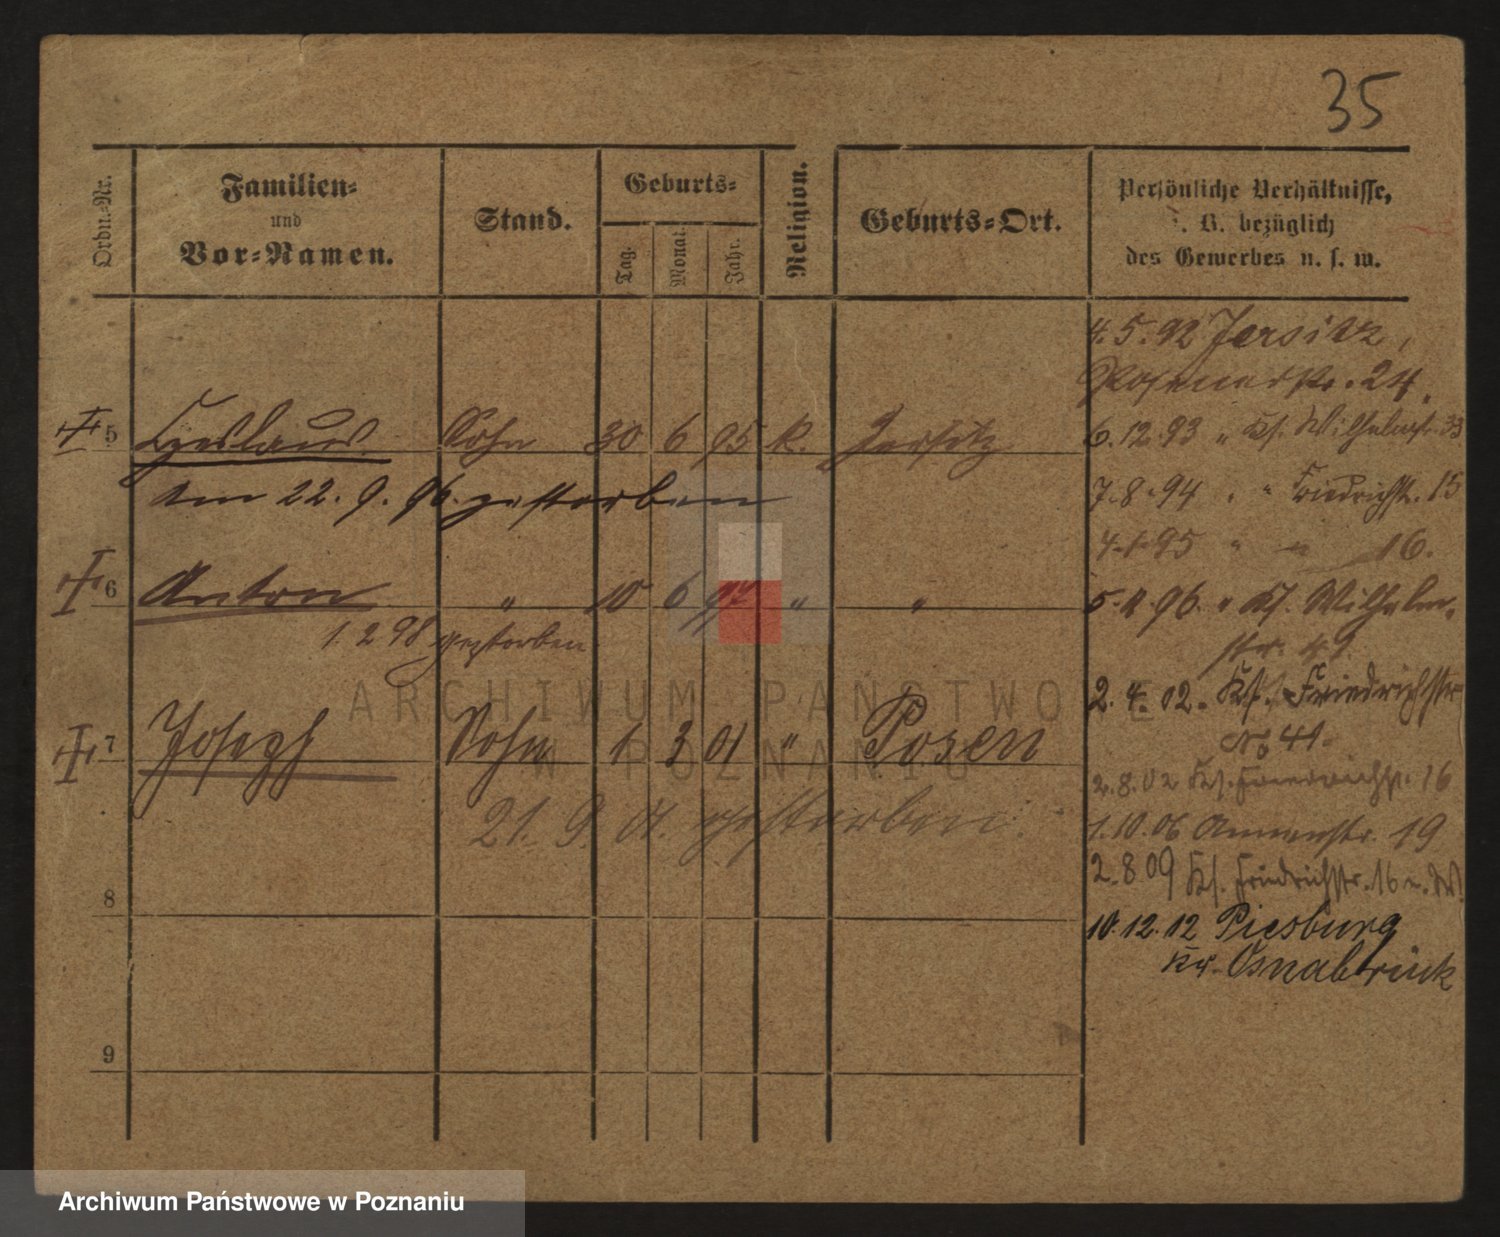 35
Ordn.-Nr.
Familien-
und
Vor-Namen.
Stand.
Geburts-
Tag.
Monat.
Jahr.
Religion.
Geburts-Ort.
Persönliche Verhältnisse,
z. B. bezüglich
des Gewerbes u. s. w.
4. 5. 92 Jersitz,
Posenerstr. 24.
5 Czeslaus Sohn 30 6 95 k. Jersitz
6. 12. 93 " Ks. Wilhelmstr. 33
am 22. 9. 96. gestorben
7. 8. 94 " " Friedrichstr. 15
4. 1. 95 " " 16.
6 Anton " 10 6 97 " "
96. " Ks. Wilhelm-
str. 49
1. 2 98 gestorben
2. 4. 02. Ks. Friedrichstr
No 41.
7 Joseph Sohn 1 3 01 " Posen
2. 8. 02 Ks. Friedrichstr. 16
21. 9. 01. gestorben.
1. 10. 06 Annenstr. 19
2. 8 09 Ks. Friedrichstr. 16
8
10. 12. 12 Piesburg
Kr. Osnabrück
9
ARCHIWUM PAŃSTWOWE
W POZNANIU
Archiwum Państwowe w Poznaniu